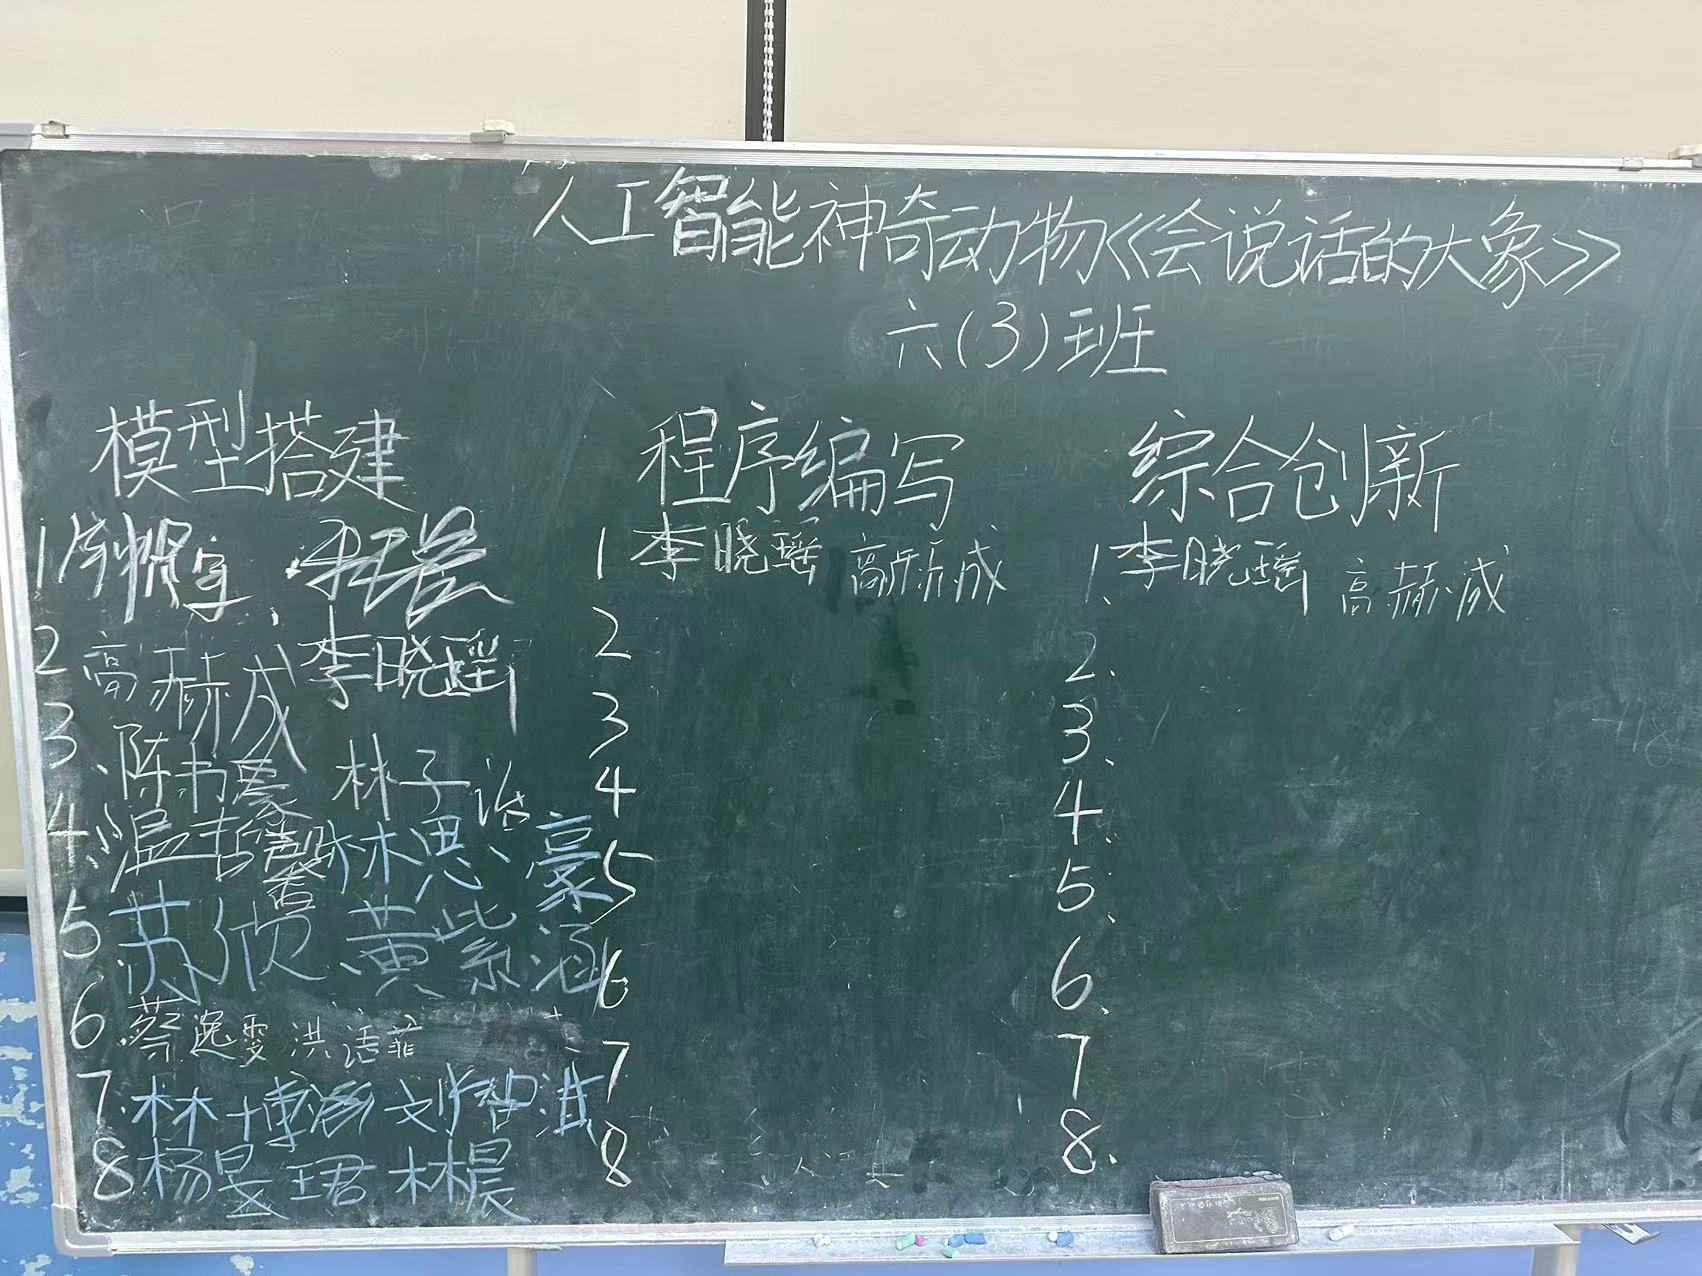 人工智能神奇动物《会说话的大象》
六(3)班
模型搭建
1
2 高赫成 李晓瑶
3、陈书豪 林子
4、温哲 林思豪
5 苏欣 黄紫涵
6 蔡逸雯 洪语菲
7、林博涵 刘智淇
8 杨旻珺 林晨
程序编写
1 李晓瑶 高赫成
2
3
4
5
6
7
8
综合创新
1、李晓瑶 高赫成
2、
3、
4、
5、
6、
7
8、